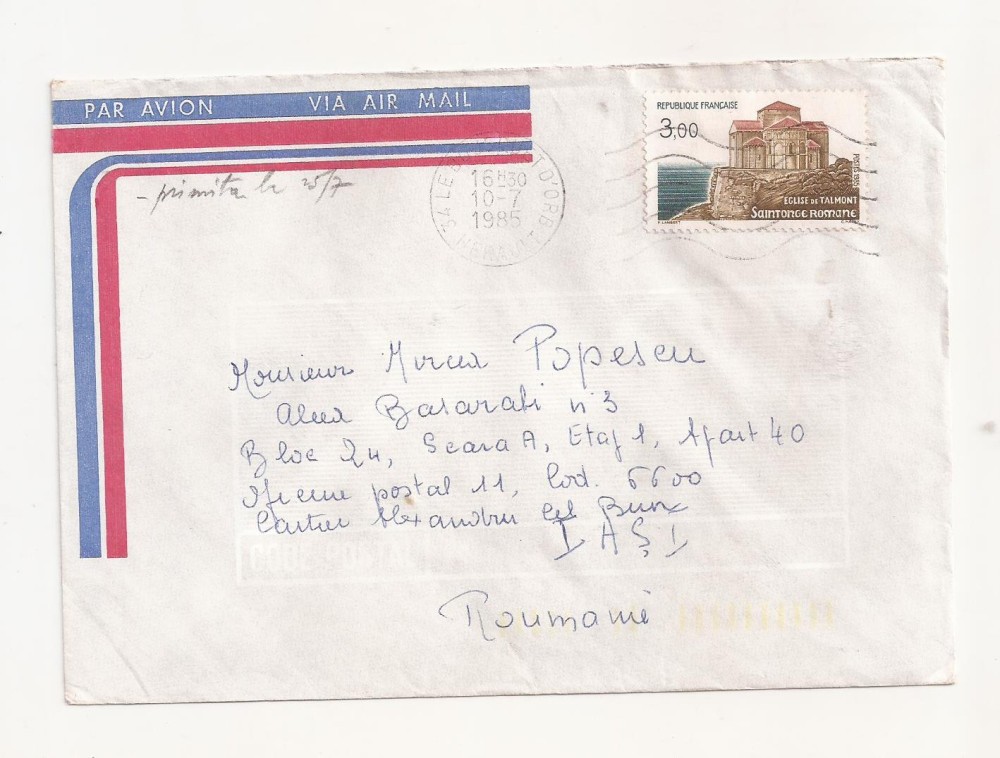 PAR AVION VIA AIR MAIL
REPUBLIQUE FRANÇAISE
3,00
EGLISE DE TALMONT
SAINTONGE ROMANE
16H30
10-7
1985
HERAULT
- primita le 25/7
Monsieur Mircea Popescu
Aleea Basarabi n° 3
Bloc 24, Scara A, Etaj 1, Apart 40
Oficiul postal 11, Cod. 6600
Cartier Alexandru cel Bun
IAŞI
Roumanie
CODE POSTAL